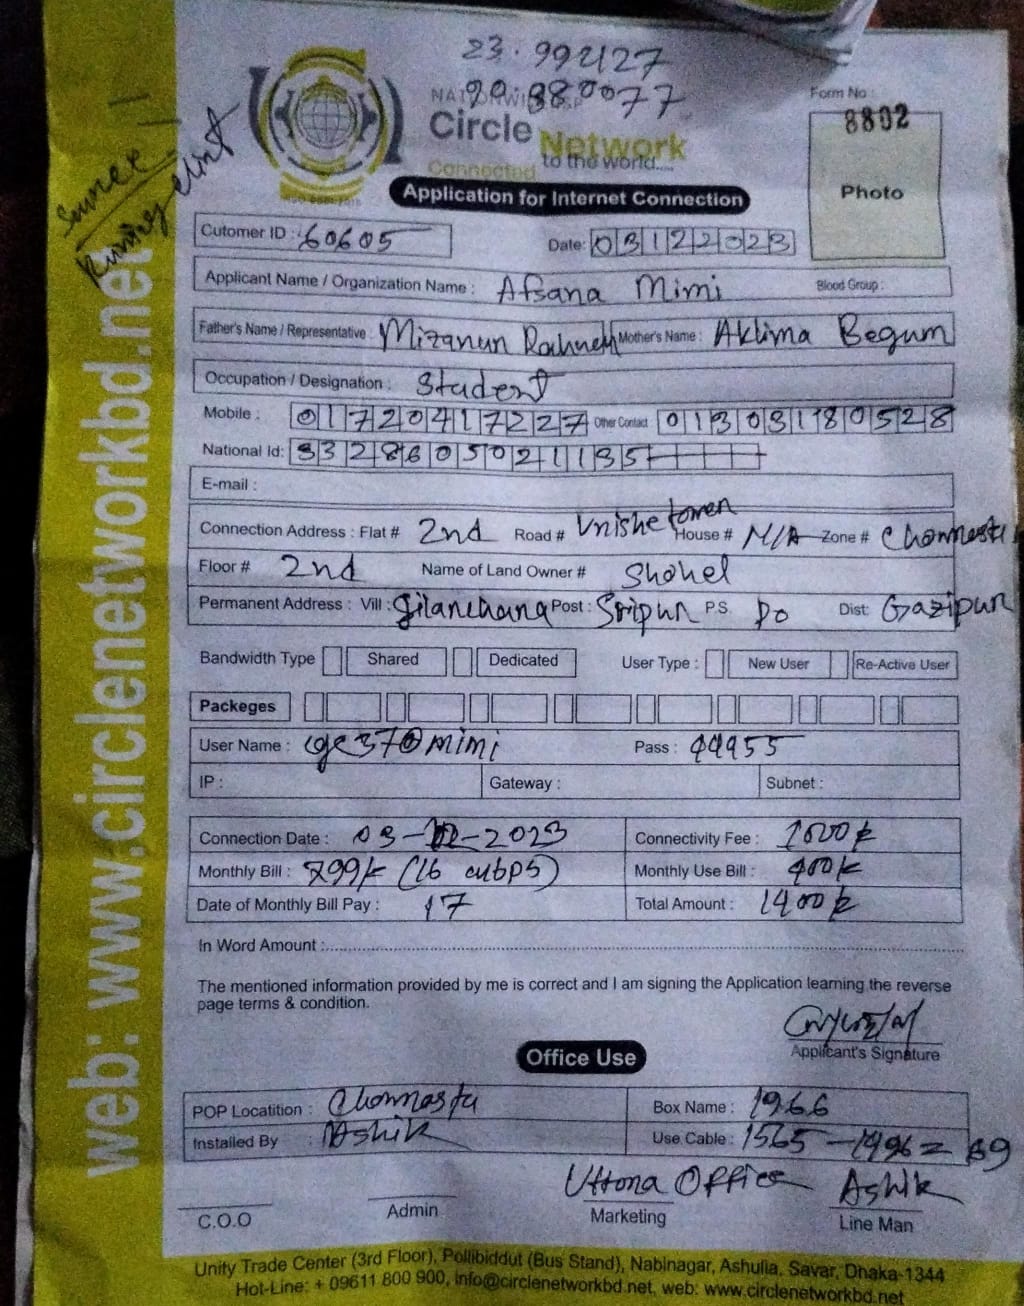 23.992127
90.880077
NATIONWIDE ISP
Circle Network
Connected to the world....
Form No :
8802
Photo
Application for Internet Connection
Cutomer ID : 60605 Date: 03122023
Applicant Name / Organization Name : Afsana Mimi Blood Group :
Father's Name / Representative : Mizanun Mother's Name : Aklima Begum
Occupation / Designation : Student
Mobile : 01720417227 Other Contact 01303180528
National Id: 3328605021135
E-mail :
Connection Address : Flat # 2nd Road # House # N/A Zone #
Floor # 2nd Name of Land Owner # Shohel
Permanent Address : Vill : Post : Sripur P.S. Do Dist: Gazipur
Bandwidth Type Shared Dedicated User Type : New User Re-Active User
Packeges
User Name : Pass : 44955
IP : Gateway : Subnet :
Connection Date : 03-12-2023 Connectivity Fee : 1000
Monthly Bill : (16 mbps) Monthly Use Bill : 400
Date of Monthly Bill Pay : 17 Total Amount : 1400
In Word Amount :
The mentioned information provided by me is correct and I am signing the Application learning the reverse
page terms & condition.
Applicant's Signature
Office Use
POP Locatition : Box Name : 1966
Installed By : Ashik Use Cable : 1565-1496=69
Office Ashik
C.O.O Admin Marketing Line Man
Unity Trade Center (3rd Floor), Pollibiddut (Bus Stand), Nabinagar, Ashulia, Savar, Dhaka-1344
Hot-Line: + 09611 800 900, info@circlenetworkbd.net, web: www.circlenetworkbd.net
web: www.circlenetworkbd.net